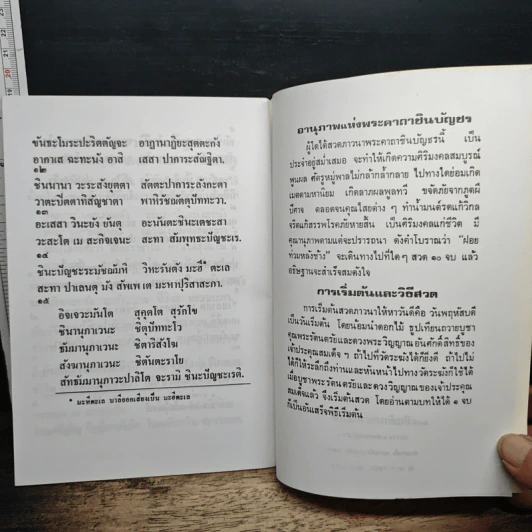 ขันธะโมระปะริตตัญจะ อาฏานาฏิยะสุตตะกัง
อากาเส ฉะทะนัง อาสิ เสสา ปาการะสัณฐิตา.
๑๒
ชินนานา วะระสังยุตตา สัตตะปาการะลังกะตา
วาตะปิตตาทิสัญชาตา พาหิรัชฌัตตุปัททะวา.
๑๓
อะเสสา วินะยัง ยันตุ อะนันตะชินะเตชะสา
วะสะโต เม สะกิจเจนะ สะทา สัมพุทธะปัญชะเร.
๑๔
ชินะปัญชะระมัชฌัมหิ วิหะรันตัง มะฮี* ตะเล
สะทา ปาเลนตุ มัง สัพเพ เต มะหาปุริสาสะภา.
๑๕
อิจเจวะมันโต สุคุตโต สุรักโข
ชินานุภาเวนะ ชิตุปัททะโว
ธัมมานุภาเวนะ ชิตาริสังโฆ
สังฆานุภาเวนะ ชิตันตะราโย
สัทธัมมานุภาวะปาลิโต จะรามิ ชินะปัญชะเรติ.
* มะหีตะเล บาลีออกเสียงเป็น มะฮีตะเล
อานุภาพแห่งพระคาถาชินบัญชร
ผู้ใดได้สวดภาวนาพระคาถาชินบัญชรนี้ เป็น
ประจำอยู่สม่ำเสมอ จะทำให้เกิดความสิริมงคลสมบูรณ์
พูนผล ศัตรูหมู่พาลไม่กล้ำกล้าย ไปทางใดย่อมเกิด
เมตตามหานิยม เกิดลาภผลพูนทวี ขจัดภัยจากภูตผี
ปีศาจ ตลอดจนคุณไสยต่าง ๆ ทำน้ำมนต์รดแก้วิกล
จริตแก้สรรพโรคภัยหายสิ้น เป็นสิริมงคลแก่ชีวิต มี
คุณานุภาพตามแต่จะปรารถนา ดังคำโบราณว่า "ฝอย
ท่วมหลังช้าง" จะเดินทางไปที่ใด ๆ สวด ๑๐ จบ แล้ว
อธิษฐานจะสำเร็จสมดังใจ
การเริ่มต้นและวิธีสวด
การเริ่มต้นสวดภาวนาให้หาวันดีคือ วันพฤหัสบดี
เป็นวันเริ่มต้น โดยน้อมนำดอกไม้ ธูปเทียนถวายบูชา
คุณพระรัตนตรัยและดวงพระวิญญาณอันศักดิ์สิทธิ์ของ
เจ้าประคุณสมเด็จ ๆ ถ้าไปที่วัดระฆังได้ก็ยิ่งดี ถ้าไปไม่
ได้ก็ให้ระลึกถึงท่านและหันหน้าไปทางวัดระฆังก็ใช้ได้
เมื่อบูชาพระรัตนตรัยและดวงวิญญาณของเจ้าประคุณ
สมเด็จแล้ว จึงเริ่มต้นสวด โดยอ่านตามบทให้ได้ ๑ จบ
ก็เป็นอันเสร็จพิธีเริ่มต้น